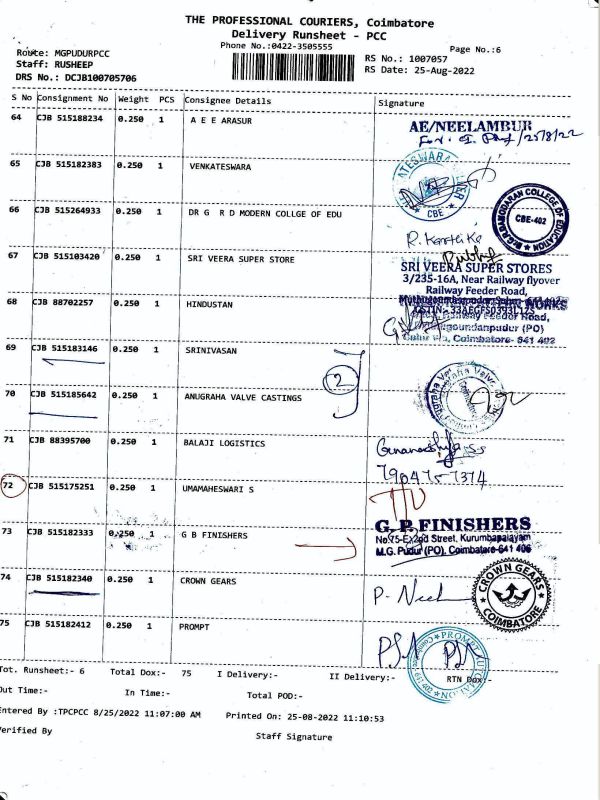 THE PROFESSIONAL COURIERS, Coimbatore
Delivery Runsheet - PCC
Phone No.:0422-3505555
Page No.:6
Route: MGPUDURPCC
RS No.: 1007057
Staff: RUSHEEP
RS Date: 25-Aug-2022
DRS No.: DCJB100705706
S No Consignment No Weight PCS Consignee Details Signature
64 CJB 515188234 0.250 1 A E E ARASUR
AE/NEELAMBUR
25/8/22
65 CJB 515182383 0.250 1 VENKATESWARA
CBE
66 CJB 515264933 0.250 1 DR G R D MODERN COLLGE OF EDU
CBE-402
R. Karthike
67 CJB 515103420 0.250 1 SRI VEERA SUPER STORE
SRI VEERA SUPER STORES
3/235-16A, Near Railway flyover
Railway Feeder Road,
68 CJB 88702257 1 HINDUSTAN
WORKS
Coimbatore- 641 402
69 CJB 515183146 0.250 1 SRINIVASAN
2
70 CJB 515185642 0.250 1 ANUGRAHA VALVE CASTINGS
71 CJB 88395700 1 BALAJI LOGISTICS
72 CJB 515175251 0.250 1 UMAMAHESWARI S
73 CJB 515182333 0.250 1 G B FINISHERS
FINISHERS
Street, Kurumbapalayam
M.G. Pudur (PO), Coimbatore-641 406
74 CJB 515182340 0.250 1 CROWN GEARS
CROWN GEARS
COIMBATORE
75 CJB 515182412 0.250 1 PROMPT
Tot. Runsheet:- 6 Total Dox:- 75 I Delivery:- II Delivery:- RTN Dox:-
Out Time:- In Time:- Total POD:-
Entered By :TPCPCC 8/25/2022 11:07:00 AM Printed On: 25-08-2022 11:10:53
Verified By Staff Signature